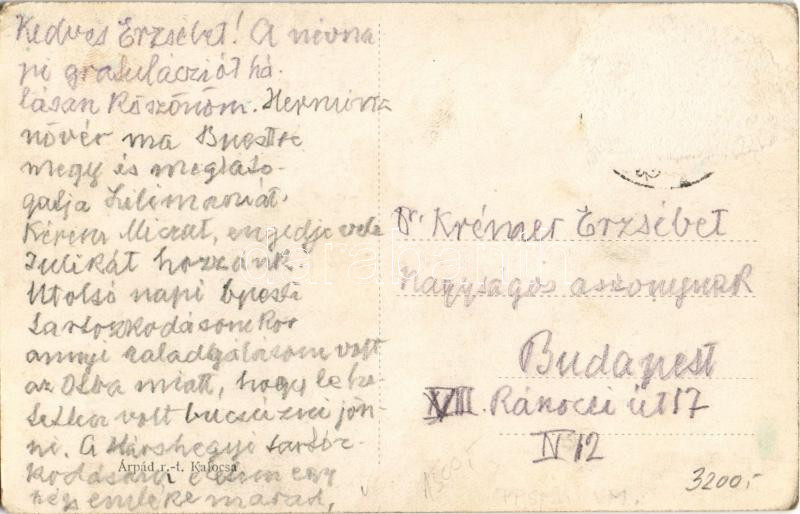 Kedves Erzsébet! A névna
pi gratulácziót há-
lásan köszönöm. Herminia
nővér ma Bpestre
megy és megláto-
gatja Lilimariát.
Kérem Miczit, engedje vele
Julikát hozzánk.
Utolsó napi bpesti
tartózkodásomkor
annyi szaladgálásom volt
az miatt, hogy lehe-
tetlen volt búcsúzni jön-
ni. A Hárshegyi tartóz-
kodásunk életem egy
szép emléke marad,
Árpád r.-t. Kalocsa
Dr. Krémer Erzsébet
Nagyságos asszonynak
Budapest
VIII. Rákóczi út 17
IV 12
3200,-